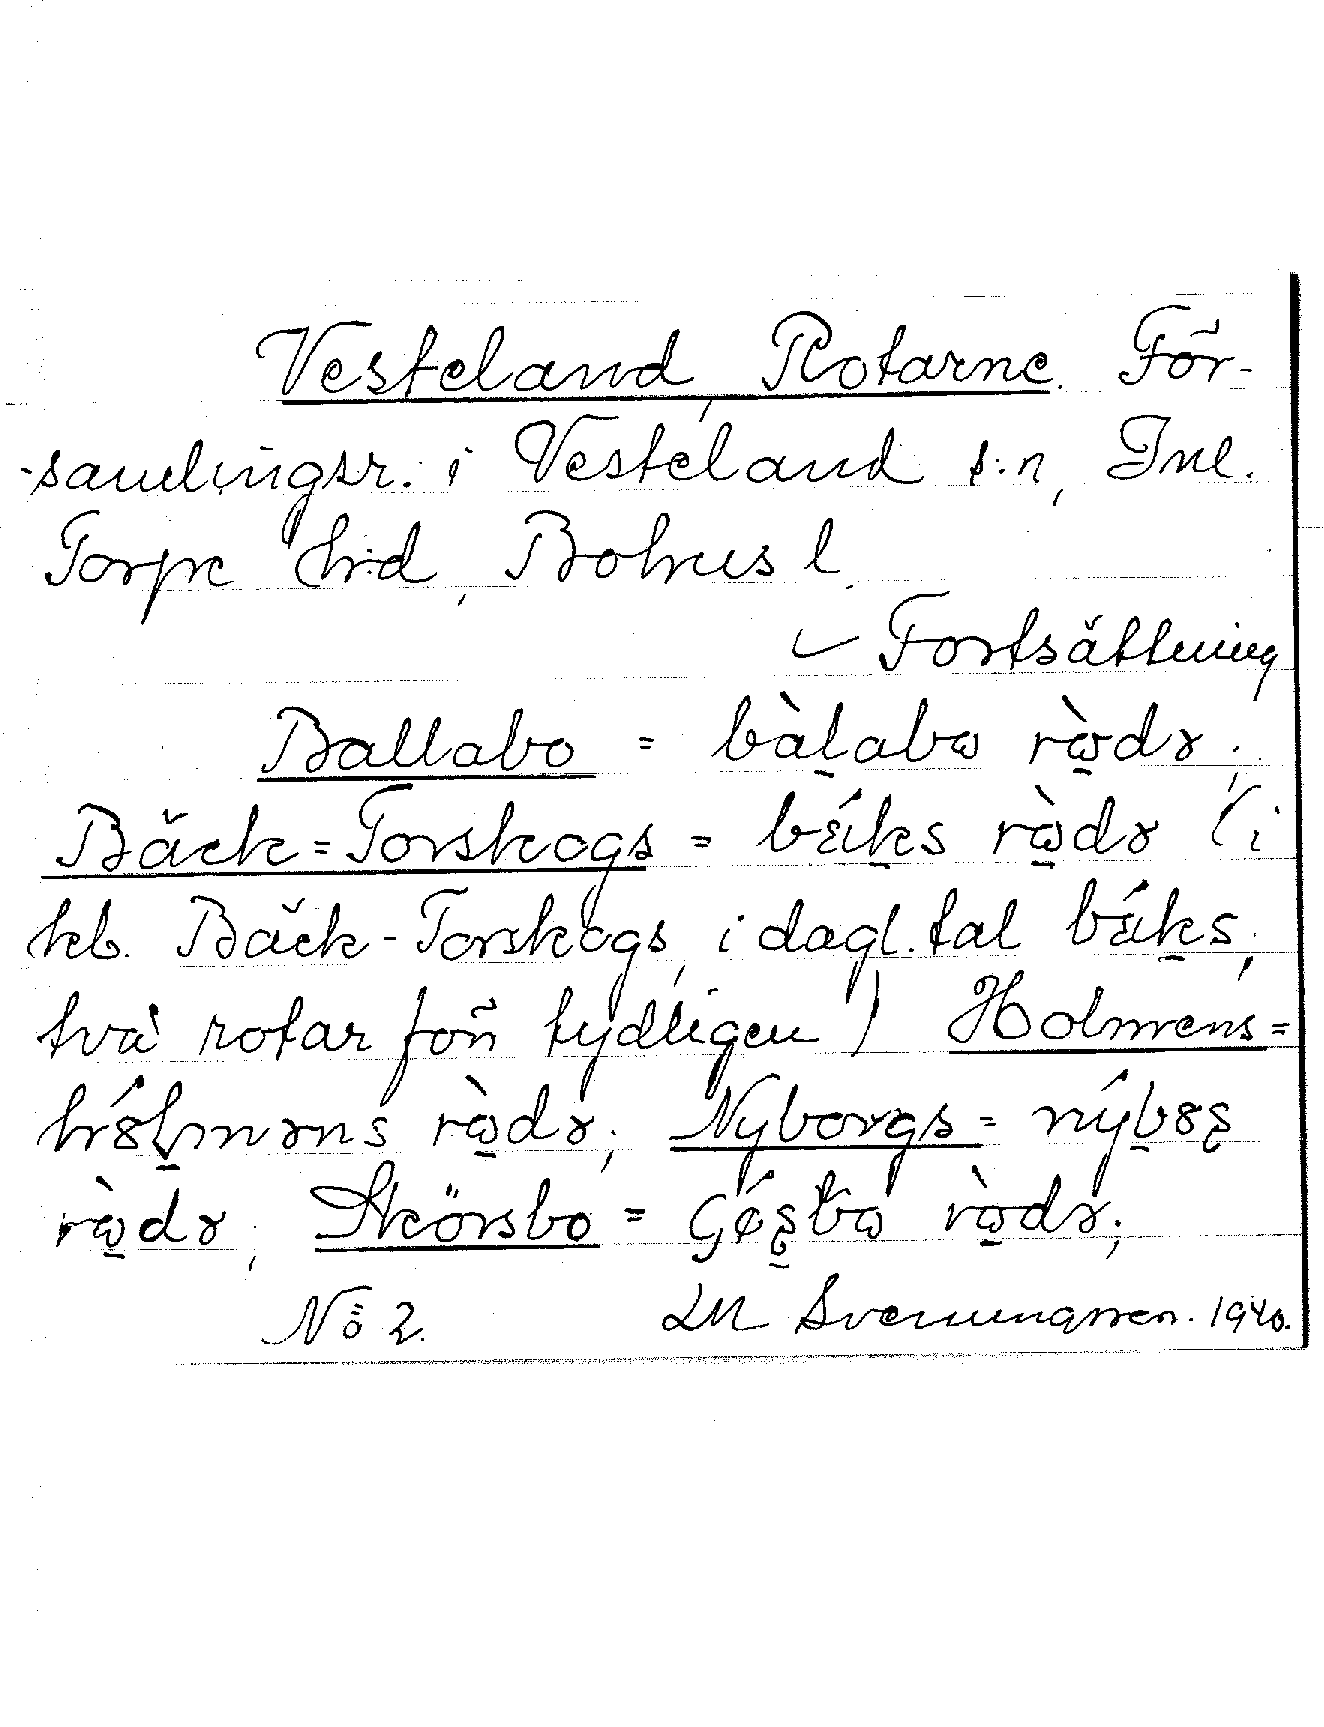 Vesteland, Rotarne. För-
-samlingsr. i Vesteland s:n, Inl.
Torpe h:d, Bohus l.
Fortsättning
Ballabo = bàḷabɷ rɷ̀dɤ;
Bäck=Torskogs = bǽks rɷ̀dɤ (i
kb. Bäck-Torskogs, i dagl. tal bǽks,
två rotar förr tydligen) Holmens =
hólmɤns rɷ̀dɤ; Nyborgs = nýbȣʂ
rɷ̀dɤ; Skörsbo = ɕǿʂbɷ rɷ̀dɤ;
No 2. LM Svenungsson. 1940.